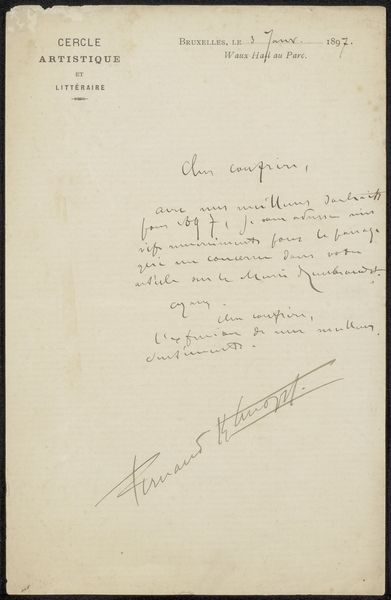 CERCLE
ARTISTIQUE
ET
LITTÉRAIRE
BRUXELLES, LE 3 Janv. 1897.
Waux Hall au Parc.
Cher confrère,
avec mes meilleurs souhaits
pour 1897, je vous adresse mes
vifs remerciments pour le passage
qui me concerne dans votre
article sur le
Cher confrère,
l'expression de mes meilleurs
sentiments.
Fernand Khnopff.